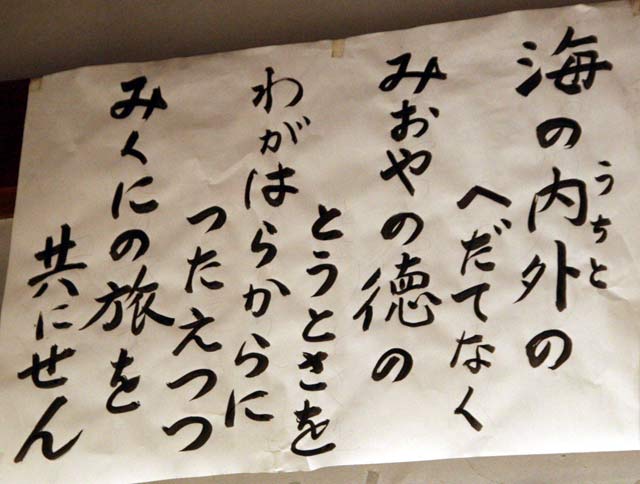 海の内外の
うちと
へだてなく
みおやの徳の
とうとさを
わがはらからに
つたえつつ
みくにの旅を
共にせん